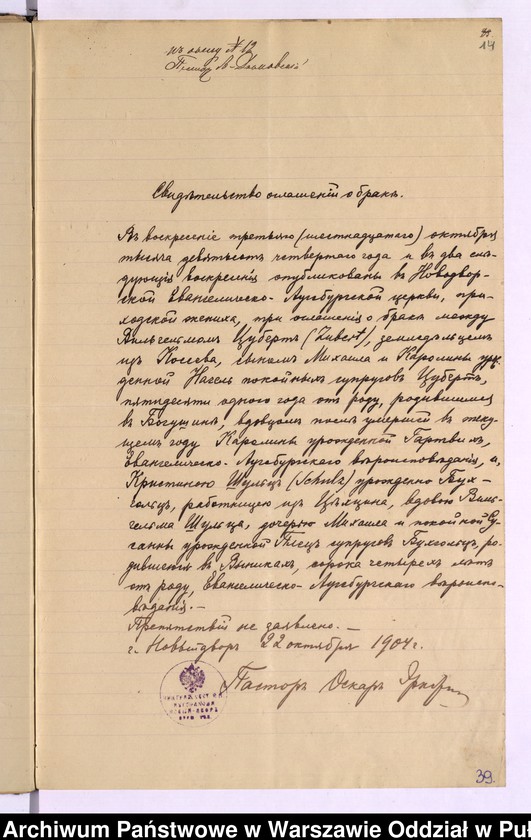 къ акту № 12
14
Свидѣтельство оглашеній о бракѣ.
Въ воскресніе третьяго (шестнадцатаго) октября
тысяча девятьсотъ четвертаго года и въ два слѣ-
дующія воскресенія опубликованы въ Новодвор-
ской Евангелическо-Аугсбургской церкви, при-
ходской жениха, три оглашенія о бракѣ между
Вильгельмомъ Цубертъ (Zubert), земледѣльцемъ
изъ Косева, сыномъ Михаила и Каролины уро-
жденной Нагель покойныхъ супруговъ Цубертъ,
пятидесяти одного года отъ роду, родившимся
въ Богушинѣ, вдовцомъ послѣ умершей въ теку-
щемъ году Каролины урожденной Гартвихъ,
Евангелическо-Аугсбургскаго вѣроисповѣданія, и,
Кристиною Шульцъ (Schulz) урожденно Бух-
гольцъ, работницею изъ Цѣхцина, вдовою Виль-
гельма Шульца, дочерью Михаила и покойной Су-
санны урожденной супруговъ Бухгольцъ, ро-
дившеюся въ сорока четырехъ лѣтъ
отъ роду, Евангелическо-Аугсбургскаго вѣроиспо-
вѣданія. —
Препятствій не заявлено. —
г. Новыйдворъ 22 октября 1904 г.
Пасторъ Оскаръ
39.
Archiwum Państwowe w Warszawie Oddział w Puł